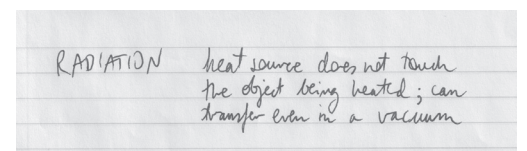 RADIATION heat source does not touch
the object being heated; can
transfer even in a vacuum